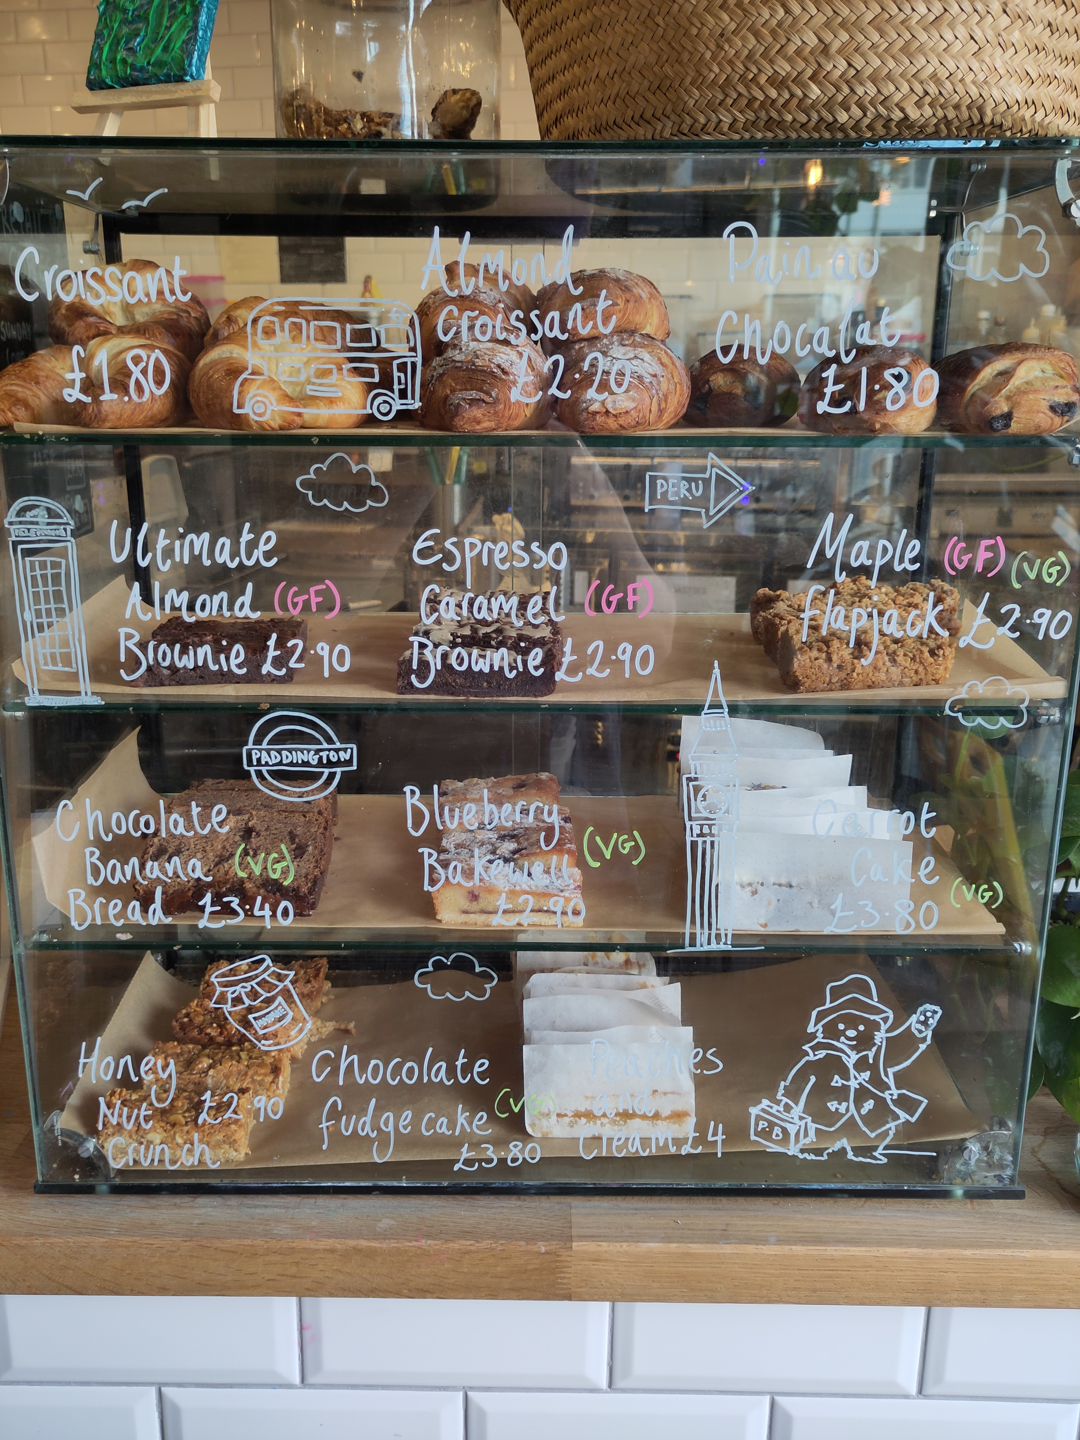 Croissant
£1.80
Almond
Croissant
£2.20
Pain au
Chocalat
£1.80
PERU
TELEPHONE
Ultimate
Almond (GF)
Brownie £2.90
Espresso
Caramel (GF)
Brownie £2.90
Maple (GF) (VG)
flapjack £2.90
PADDINGTON
Chocolate
Banana (VG)
Bread £3.40
Blueberry
Bakewell (VG)
£2.90
Carrot
Cake (VG)
£3.80
Honey
Nut £2.90
Crunch
Chocolate
fudge cake (VG)
£3.80
Peaches
and
Cream £4
P.B